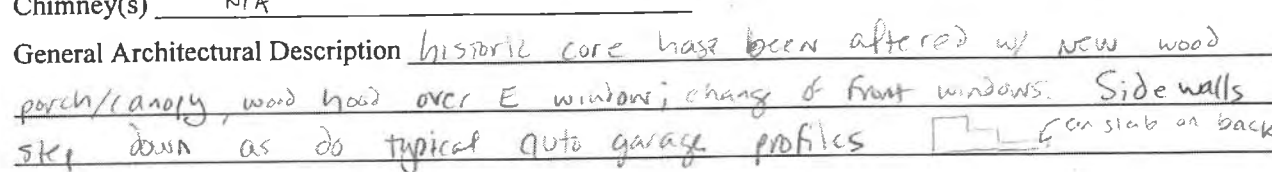 Chimney(s) N/A
General Architectural Description historic core hase been altered w/ new wood
porch/canopy, wood hood over E window; change of front windows. Side walls
step down as do typical auto garage profiles on slab on back